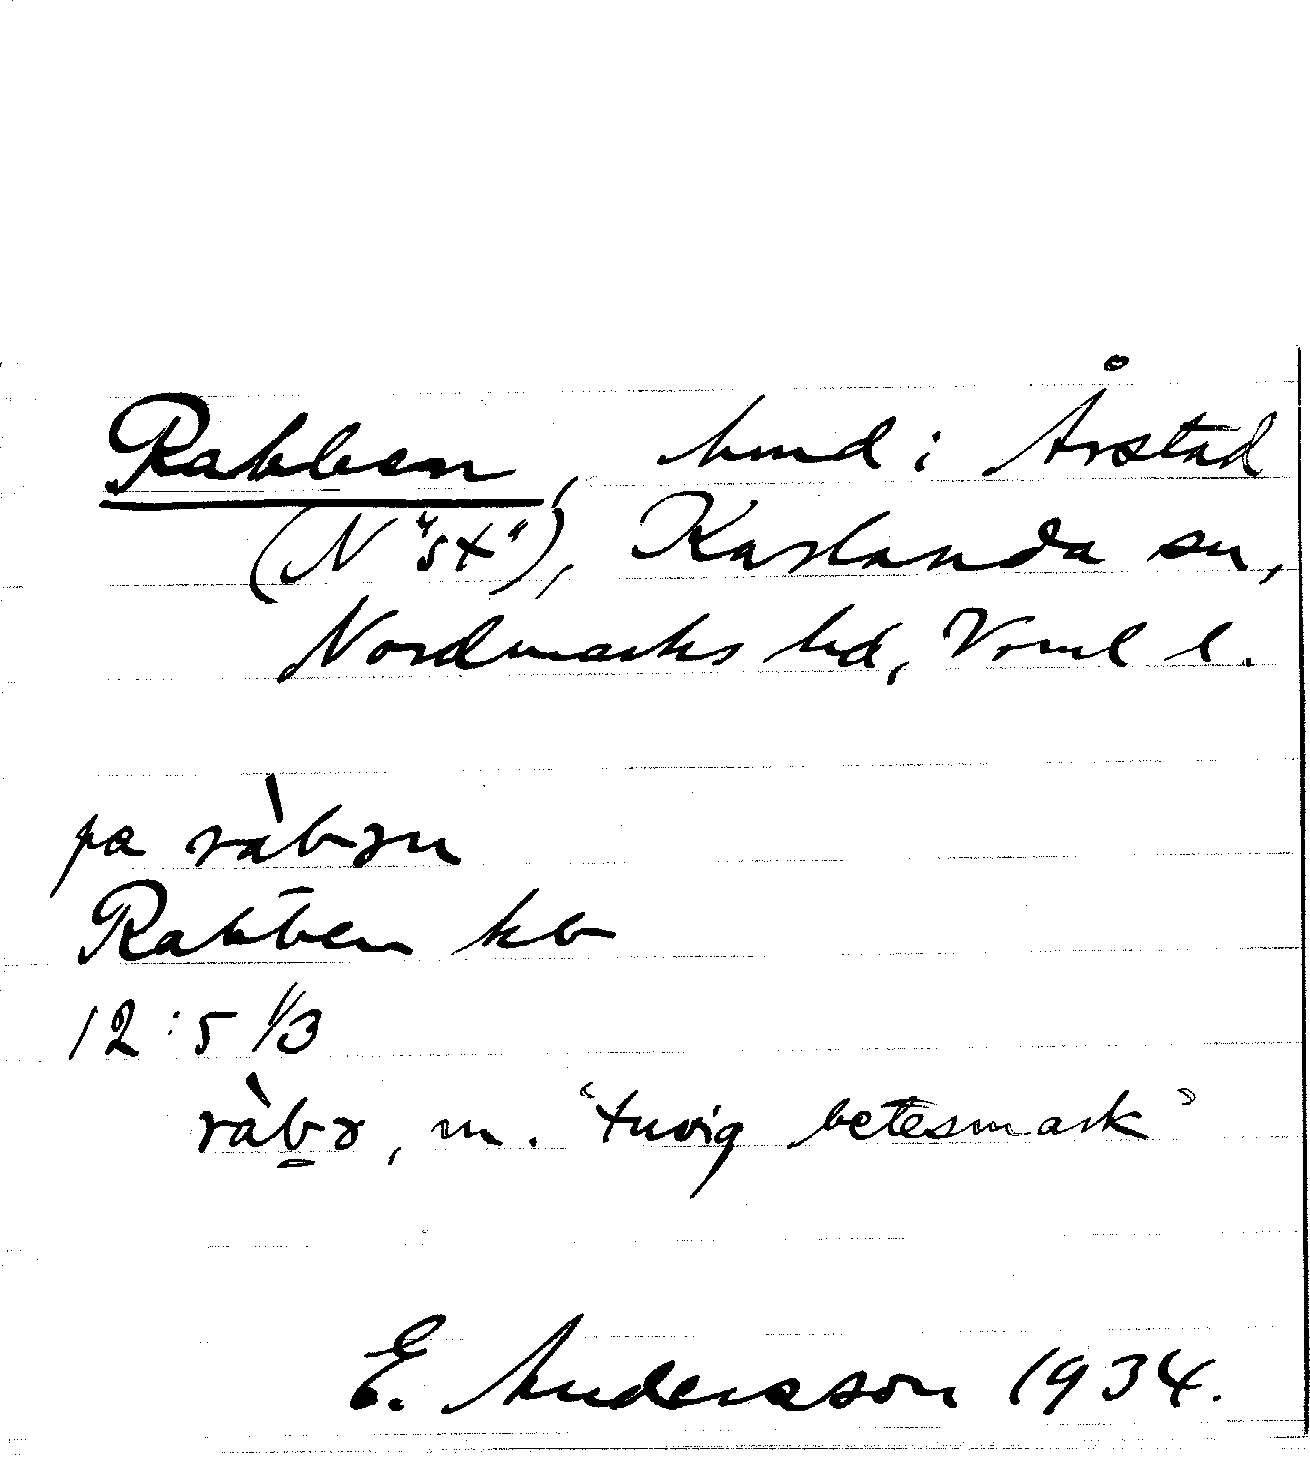 Rabben, hmd i Årstad
(N "st"), Karlanda sn,
Nordmarks hd, Vrml l.
pa ràbən
Rabben kb
12:5 1/3
ràbə, m. "tuvig betesmark"
E. Andersson 1934.